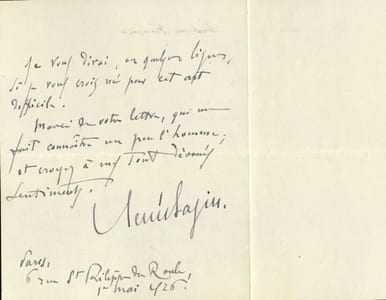 Je vous dirai, en quelques lignes,
si je vous crois né pour cet art
difficile.
Merci de votre lettre, qui me
fait connaître un peu l'homme;
et croyez à mes tout dévoués
sentiments.
René Bazin.
Paris,
6 rue St Philippe du Roule,
1er mai 1926.